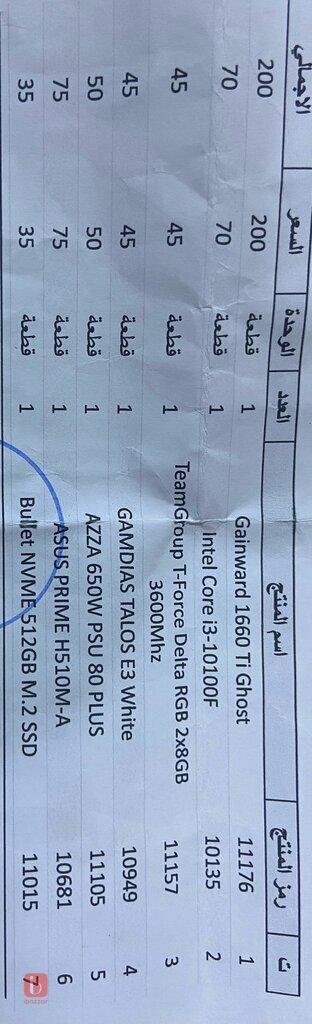 ت رمز المنتج اسم المنتج العدد الوحدة السعر الاجمالي
1 11176 Gainward 1660 Ti Ghost 1 قطعة 200 200
2 10135 Intel Core i3-10100F 1 قطعة 70 70
3 11157 TeamGroup T-Force Delta RGB 2x8GB 1 قطعة 45 45
3600Mhz
4 10949 GAMDIAS TALOS E3 White 1 قطعة 45 45
5 11105 AZZA 650W PSU 80 PLUS 1 قطعة 50 50
6 10681 ASUS PRIME H510M-A 1 قطعة 75 75
7 11015 Bullet NVME 512GB M.2 SSD 1 قطعة 35 35